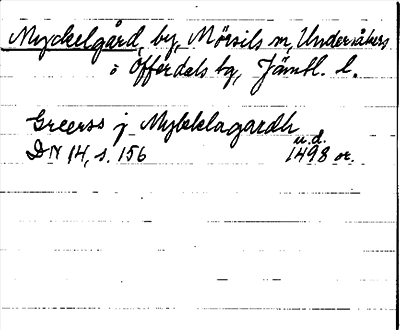 Myckelgård, by, Mörsils sn, Undersåkers
o Offerdals tg, Jämtl. l.
Greerss j Mykklagardh
u.d.
DN 14, s. 156 1498 or.